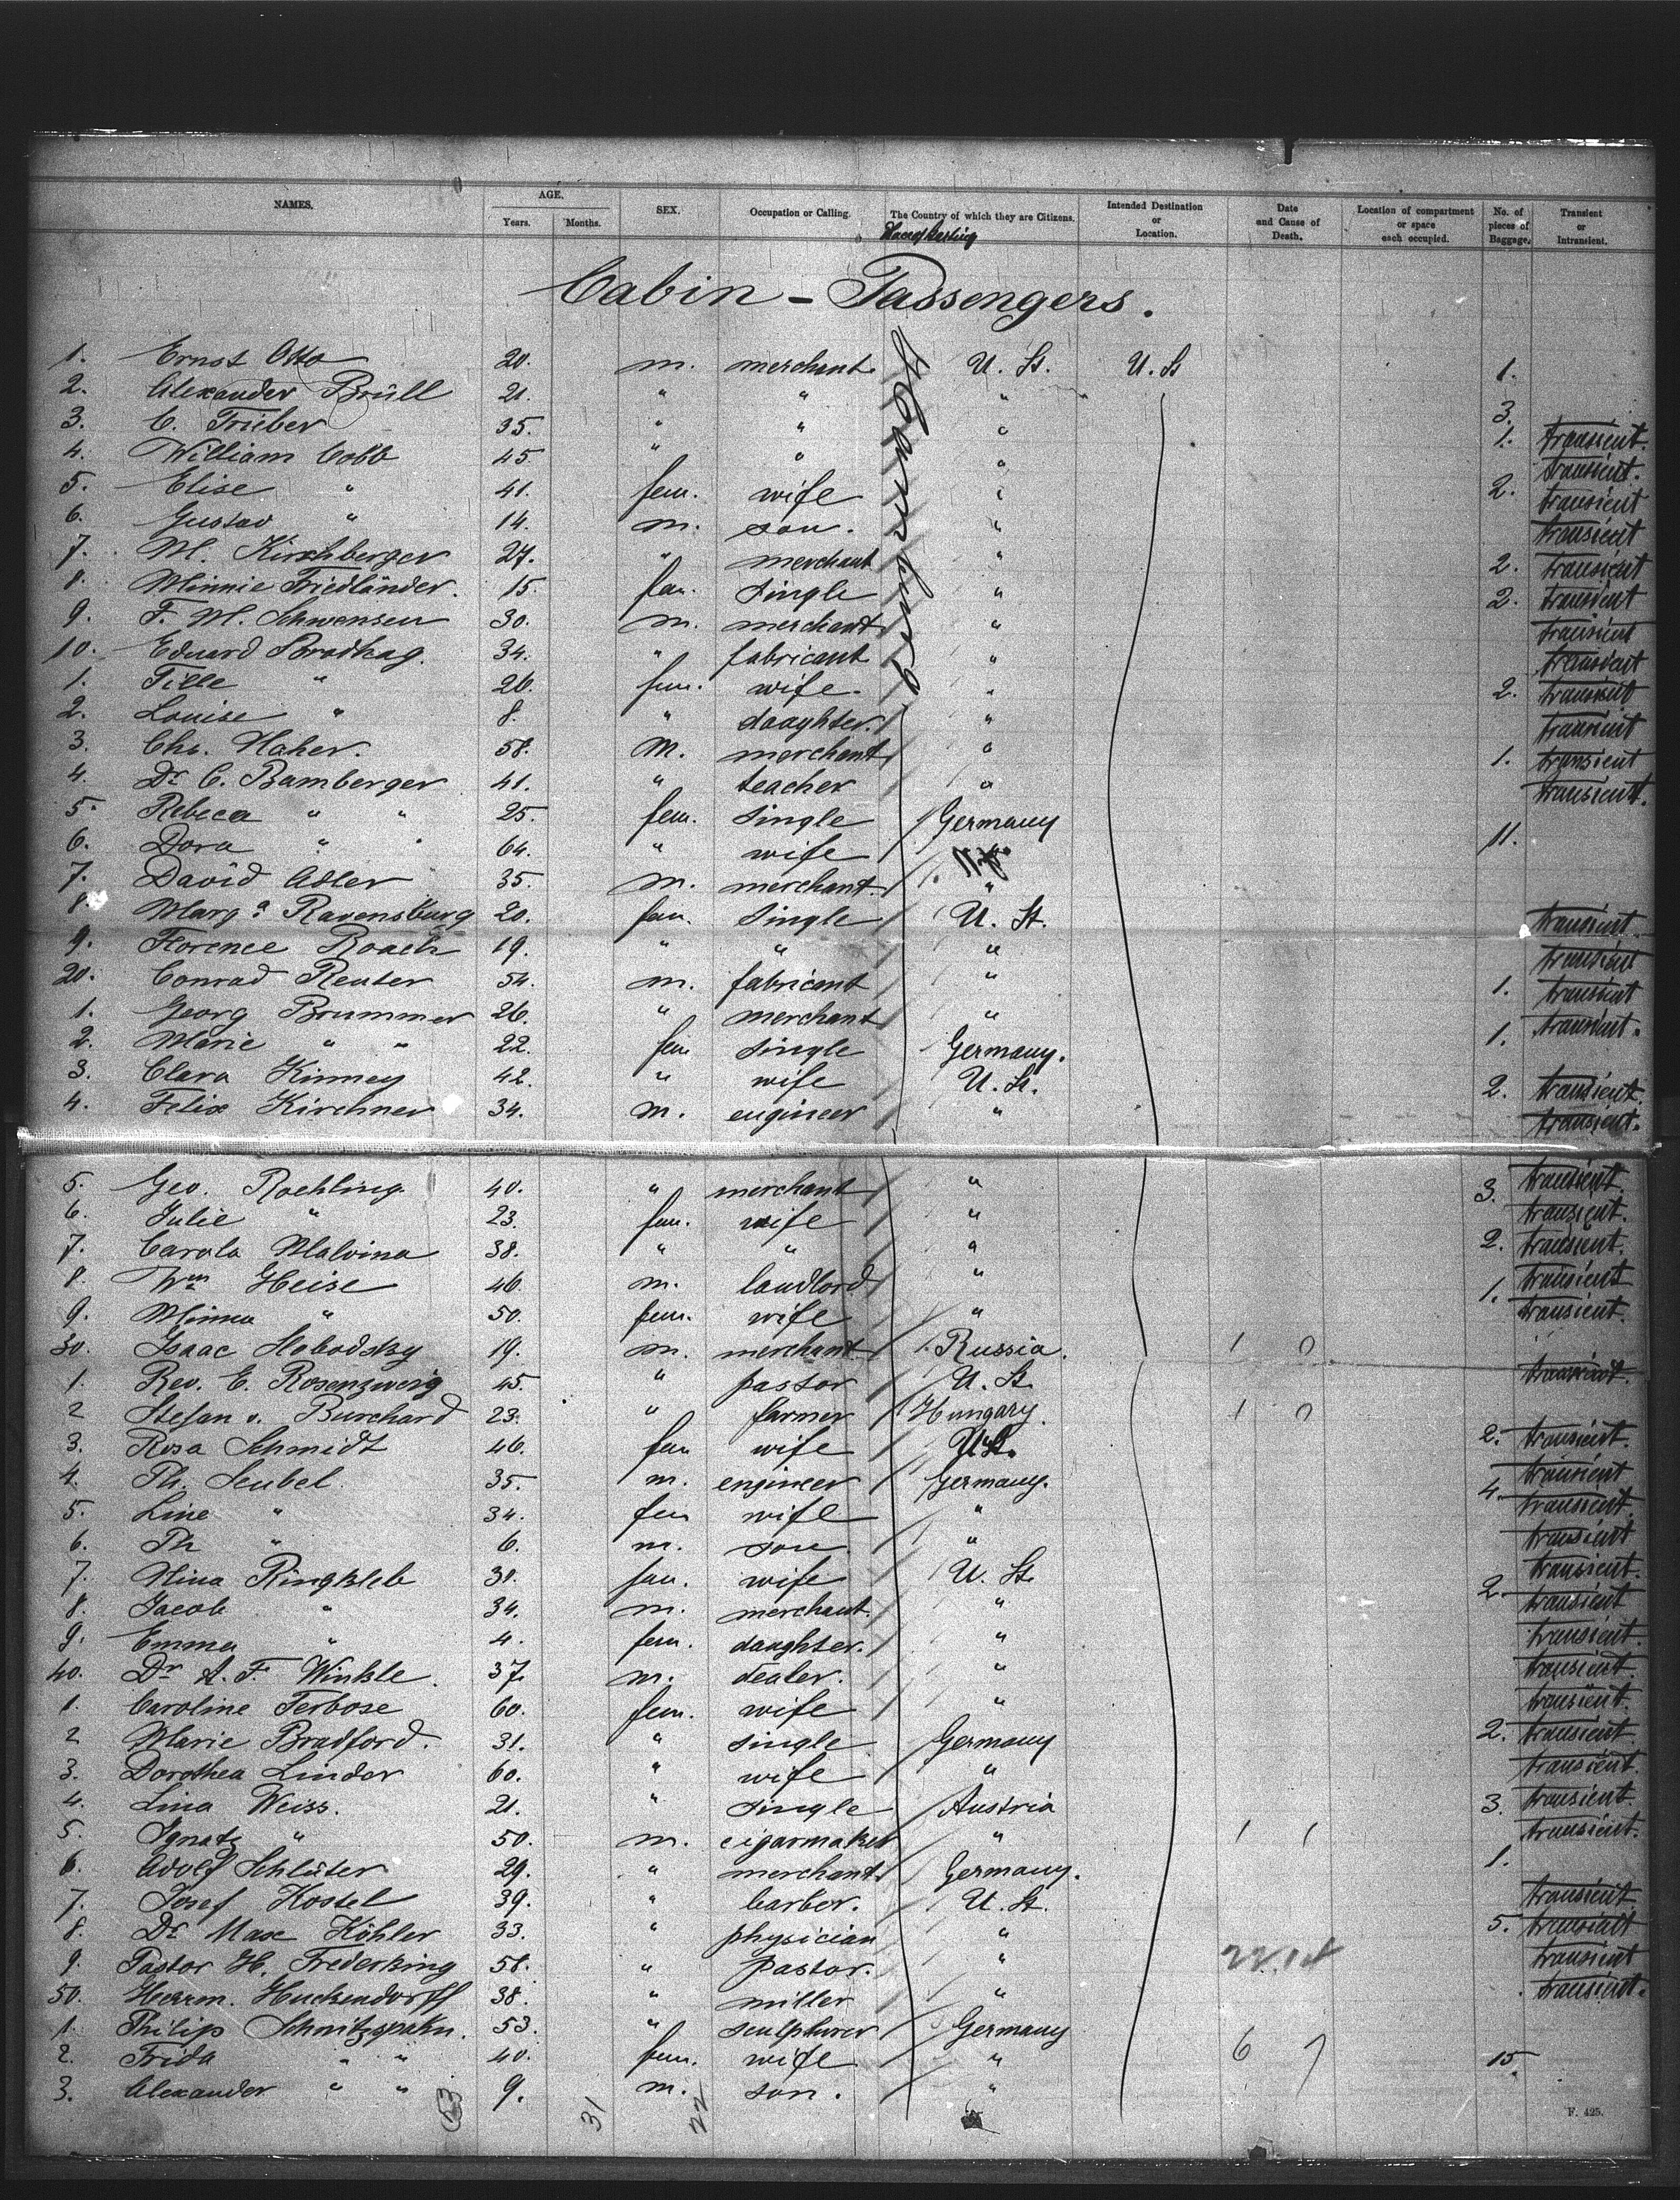 NAMES. AGE. SEX. Occupation or Calling. The Country of which they are Citizens. Intended Destination or Location. Date and Cause of Death. Location of compartment or space each occupied. No. of pieces of Baggage. Transient or Intransient.
Years. Months.
Cabin - Passengers.
Germany
1. Ernst Otto 20. m. merchant. U. St. U. St 1.
2. Alexander Brüll 21. " " " " 3.
3. C. Trieber 35. " " " 1. transient.
4. William Cobb 45. " " " transient.
5. Elise " 41. fem. wife " 2. transient
6. Gustav " 14. m. son. " transient
7. M. Kirchberger 27. " merchant " 2. transient
8. Minnie Friedländer. 15. fem. single " 2. transient
9. F. M. Schwensen 30. m. merchant " transient
10. Eduard Brodhag. 34. " fabricant " transient
1. Tille " 26. fem. wife. " 2. transient
2. Louise " 8. " daughter. " transient
3. Chs. Haher. 58. M. merchant " 1. transient
4. Dr C. Bamberger 41. " teacher " transient.
5. Rebeca " " 25. fem. single Germany
6. Dora " " 64. " wife 11.
7. David Adler 35. m. merchant. "
8. Marga Ravensburg 20. fem. single U. St. transient.
9. Florence Roach 19. " " " transient
20. Conrad Reuter 54. m. fabricant " 1. transient
1. Georg Brummer 26. " merchant " transient.
2. Marie " " 22. fem single Germany. 1.
3. Clara Kinney 42. " wife U. St. 2. transient.
4. Felix Kirchner 34. m. engineer " transient.
5. Geo. Rochling 40. " merchant " 3. transient
6. Julie " 23. fem. wife " transient.
7. Carola Malvina 38. " " " 2. transient.
8. Wm Heise 46. m. landlord " 1. transient
9. Minna " 50. fem. wife " transient.
30. Isaac Slobodsky 19. m. merchant Russia. 1 0
1. Rev. E. Rosenzweig 45. " pastor U. St. transient.
2 Stefan v. Burchard 23. " farmer Hungary. 1 0
3. Rosa Schmidt 46. fem wife U St. 2. transient.
4. Ph. Seubel. 35. m. engineer Germany. transient
5. Line " 34. fem wife " 4. transient.
6. Ph " 6. m. son. " transient
7. Nina Ringkleb 30. fem. wife U. St. transient.
8. Jacob " 34. m. merchant. " 2. transient
9. Emma " 4. fem. daughter. " transient.
40. Dr A. F. Winkle. 37. m. dealer. " transient.
1. Caroline Terbose 60. fem. wife " transient.
2 Marie Bradford. 31. " single Germany 2. transient
3. Dorothea Linder 60. " wife " transient.
4. Lina Weiss. 21. " single Austria 3. transient.
5. Ignatz " 50. m. cigarmaker " 1 1 transient.
6. Adolf Schlüter 29. " merchant. Germany. 1.
7. Josef Kostel 39. " barber. U. St. transient.
8. Dr Max Köhler 33. " physician " 5. transient
9. Pastor H. Frederking 58. " pastor. " transient
50. Herrm. Huckendorff 38. " miller " transient.
1. Philip Schnitzspahn. 53. " sculpturer Germany
2. Frida " " 40. fem. wife " 6 7 15.
3. Alexander " " 9. m. son. "
53 31 22
F. 425.